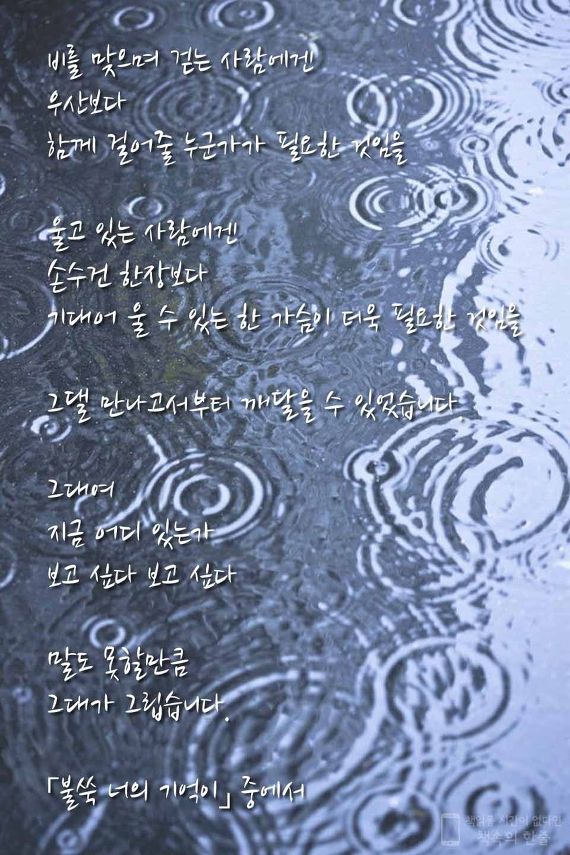 비를 맞으며 걷는 사람에겐
우산보다
함께 걸어줄 누군가가 필요한 것임을
울고 있는 사람에겐
손수건 한장보다
기대어 울 수 있는 한 가슴이 더욱 필요한 것임을
그댈 만나고서부터 깨달을 수 있었습니다
그대여
지금 어디 있는가
보고 싶다 보고 싶다
말도 못할만큼
그대가 그립습니다.
「불쑥 너의 기억이」 중에서
책읽을 시간이 없다면
책속의 한줄